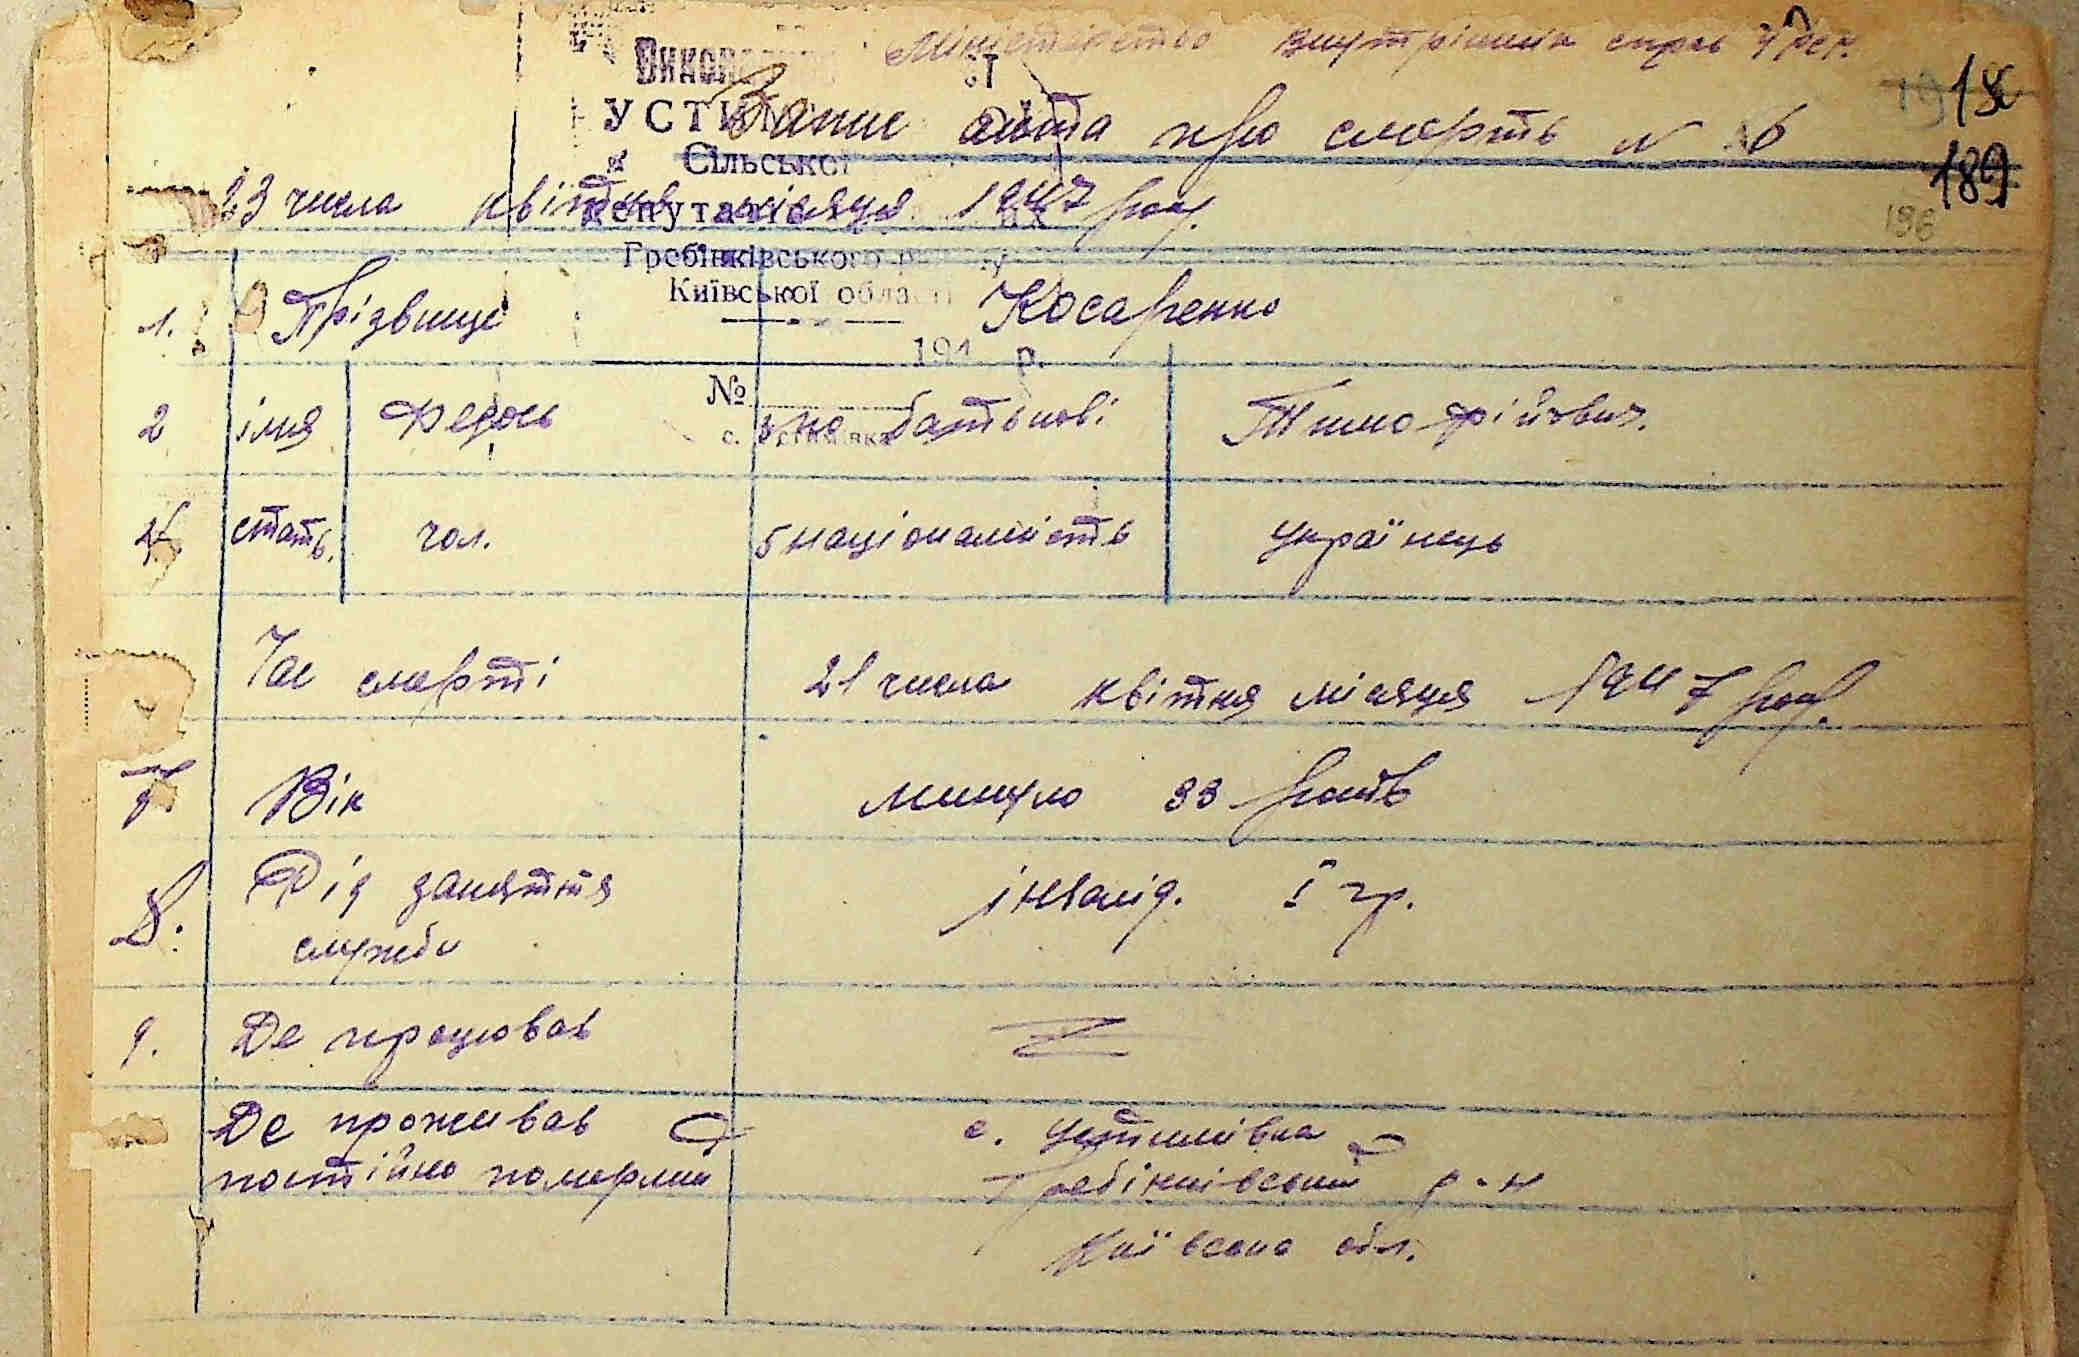 Міністерство внутрішніх справ УРСР.
Запис акта про смерть N 6
18
189
186
23 числа квітня місяця 1947 року.
Сільської
депутатів
Гребінківського
Київської області
194 р.
№
1. Прізвище Косаренко
2 імя Федось 3 по батькові Тимофійович.
4. стать. чол. 5 національність українець
Час смерті 21 числа квітня місяця 1947 року.
7. Вік минуло 33 років
8. Рід заняття інвалід. I гр.
служби
9. Де працював
Де проживав с. Устимівка
постійно померлий Гребінківський р-н
Київська обл.